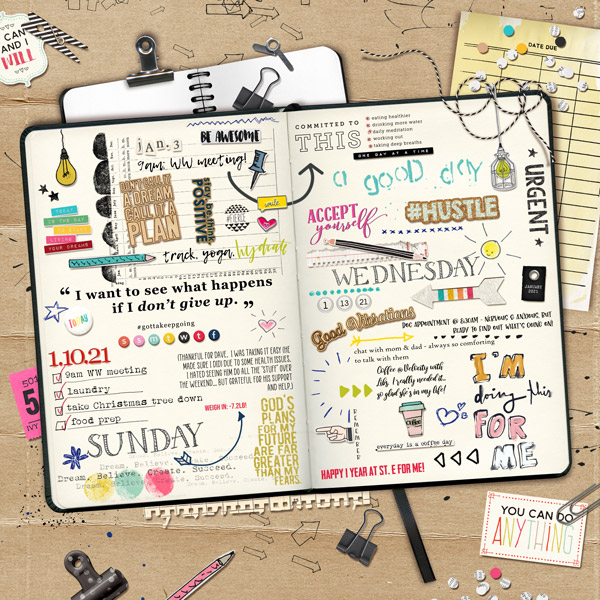 I CAN
AND I
WILL
DATE DUE
BE AWESOME
jan. 3
9am: WW meeting!
DON'T CALL IT
A DREAM
CALL IT A
PLAN
POSITIVE
smile
#HERE2
TODAY
IS THE DAY
LIVING
YOUR DREAMS
track, yoga, hydrate
“ I want to see what happens
if I don't give up. ”
TODAY
#gottakeepgoing
s s m t w t f
1.10.21
9am WW meeting
laundry
take Christmas tree down
food prep
(THANKFUL FOR DAVE. I WAS TAKING IT EASY (HE
MADE SURE I DID DUE TO SOME HEALTH ISSUES.
I HATED SEEING HIM DO ALL THE "STUFF" OVER
THE WEEKEND... BUT GRATEFUL FOR HIS SUPPORT
AND HELP.)
WEIGH IN: -7.2LB!
GOD'S
PLANS
FOR MY
FUTURE
ARE FAR
GREATER
THAN MY
FEARS.
SUNDAY
Dream. Believe. Create. Succeed.
Dream. Believe. Create. Succeed.
COMMITTED TO
THIS
eating healthier
drinking more water
daily meditation
working out
taking deep breaths
ONE DAY AT A TIME
a good day
URGENT
ACCEPT
yourself
#HUSTLE
WEDNESDAY
JANUARY
2021
1 13 21
Good Vibrations
DOC APPOINTMENT @ 8:30AM - NERVOUS & ANXIOUS, BUT
READY TO FIND OUT WHAT'S GOING ON!
chat with mom & dad - always so comforting
to talk with them
Coffee @ Velocity with
Libs. I really needed it...
so glad she's in my life!
REMEMBER
COFFEE
everyday is a coffee day
I'M
doing this
FOR
ME
HAPPY 1 YEAR AT ST. E FOR ME!
YOU CAN DO
ANYTHING